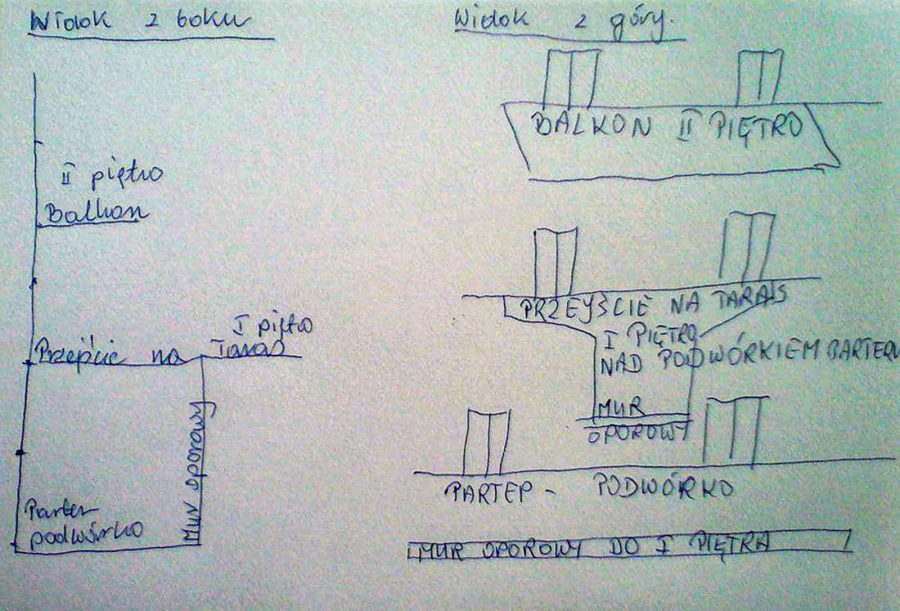 Widok z boku
II piętro
Balkon
I piętro
Przejście na Taras
MUR OPOROWY
Parter
podwórko
Widok z góry.
BALKON II PIĘTRO
PRZEYŚCIE NA TARAS
I PIĘTRO
NAD PODWÓRKIEM PARTERU
MUR
OPOROWY
PARTEP - PODWÓRKO
MUR OPOROWY DO I PIĘTRA